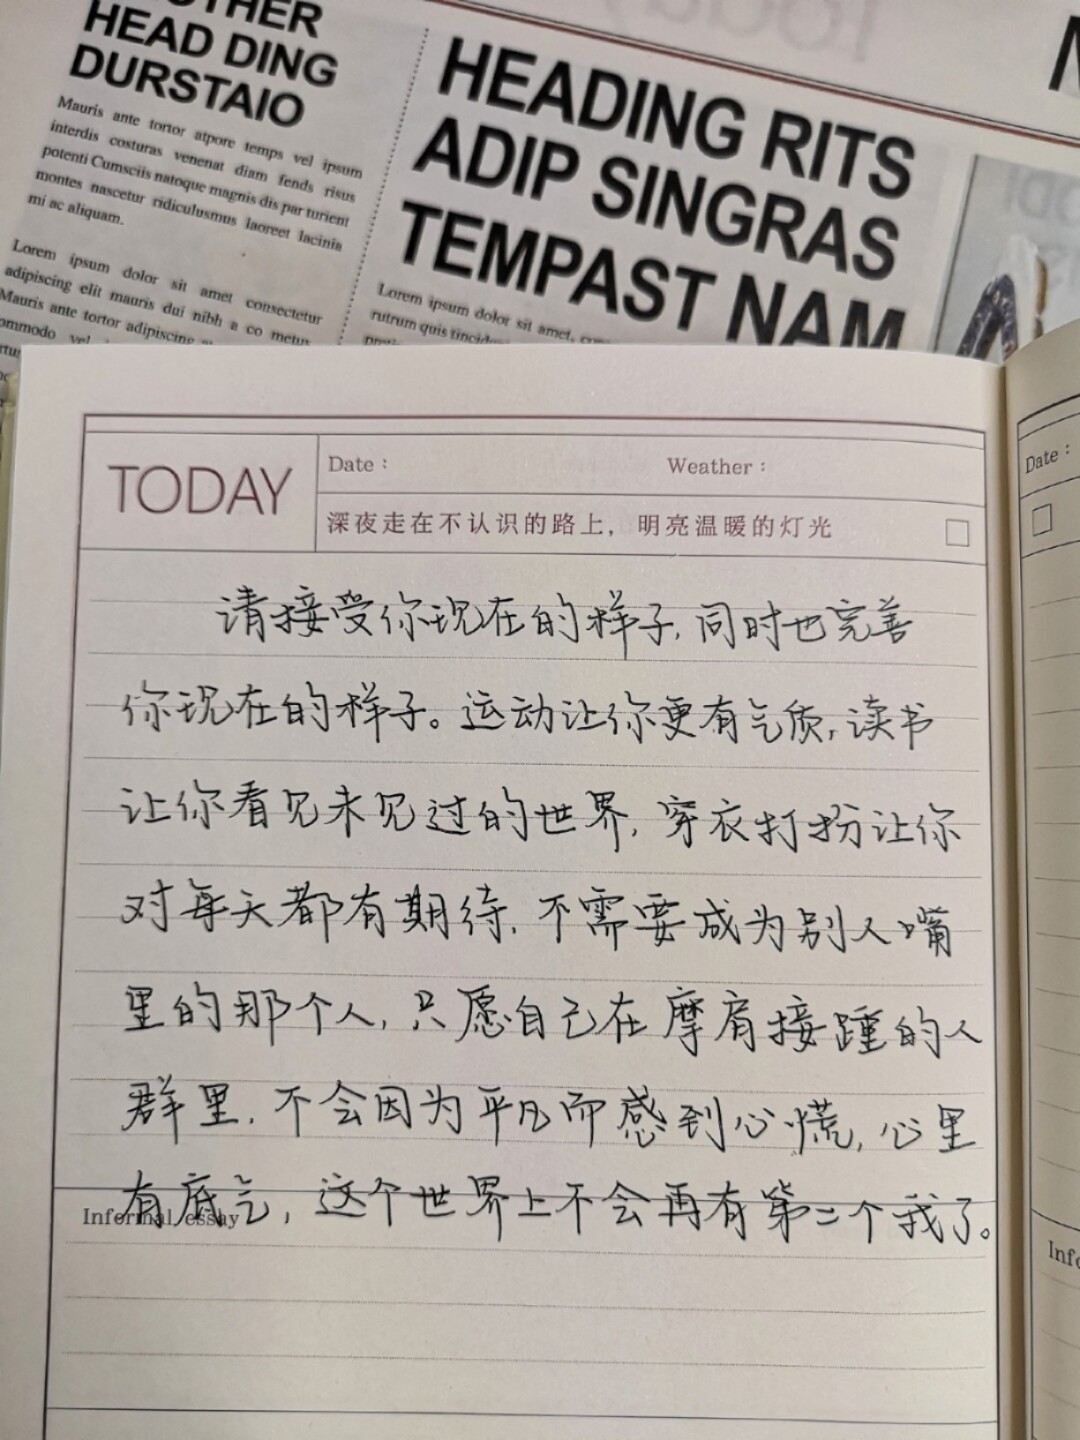 HEAD DING
DURSTAIO
Mauris ante tortor atpore temps vel ipsum
interdis costuras venenat diam fends risus
potenti Cumsciis natoque magnis dis par turient
montes nascetur ridiculusmus laoreet lacinia
mi ac aliquam.
Lorem ipsum dolor sit amet consectetur
adipiscing elit mauris dui nibh a co metus
Mauris ante tortor adipiscing
HEADING RITS
ADIP SINGRAS
TEMPAST NAM
Lorem ipsum dolor sit amet,
rutrum quis
TODAY
Date：
Weather：
深夜走在不认识的路上，明亮温暖的灯光
请接受你现在的样子,同时也完善
你现在的样子。运动让你更有气质,读书
让你看见未见过的世界,穿衣打扮让你
对每天都有期待,不需要成为别人嘴
里的那个人,只愿自己在摩肩接踵的人
群里,不会因为平凡而感到心慌,心里
有底气,这个世界上不会再有第二个我了。
Informal essay
Date：